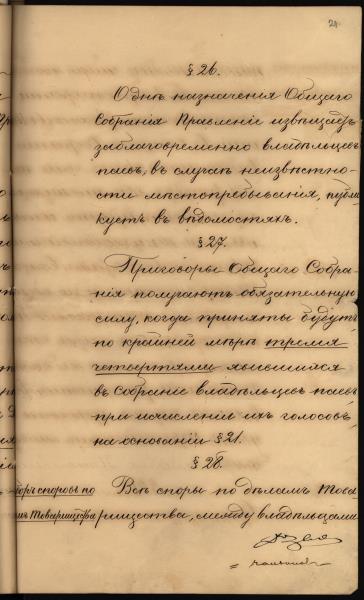 24
§ 26.
О днѣ назначенія Общаго
Собранія Правленіе извѣщаетъ
заблаговременно владѣльцевъ
паевъ, въ случаѣ неизвѣстно-
сти мѣстопребыванія, публи
куетъ въ вѣдомостяхъ.
§ 27.
Приговоры Общаго Собра-
нія получаютъ обязательную
силу, когда приняты будутъ
по крайней мѣрѣ тремя
четвертями явившихся
въ собраніе владѣльцевъ паевъ
при исчисленіи ихъ голосовъ
на основаніи § 21.
§ 28.
боръ споровъ по Всѣ споры по дѣламъ Това-
амъ Товарищества рищества, между владѣльцами